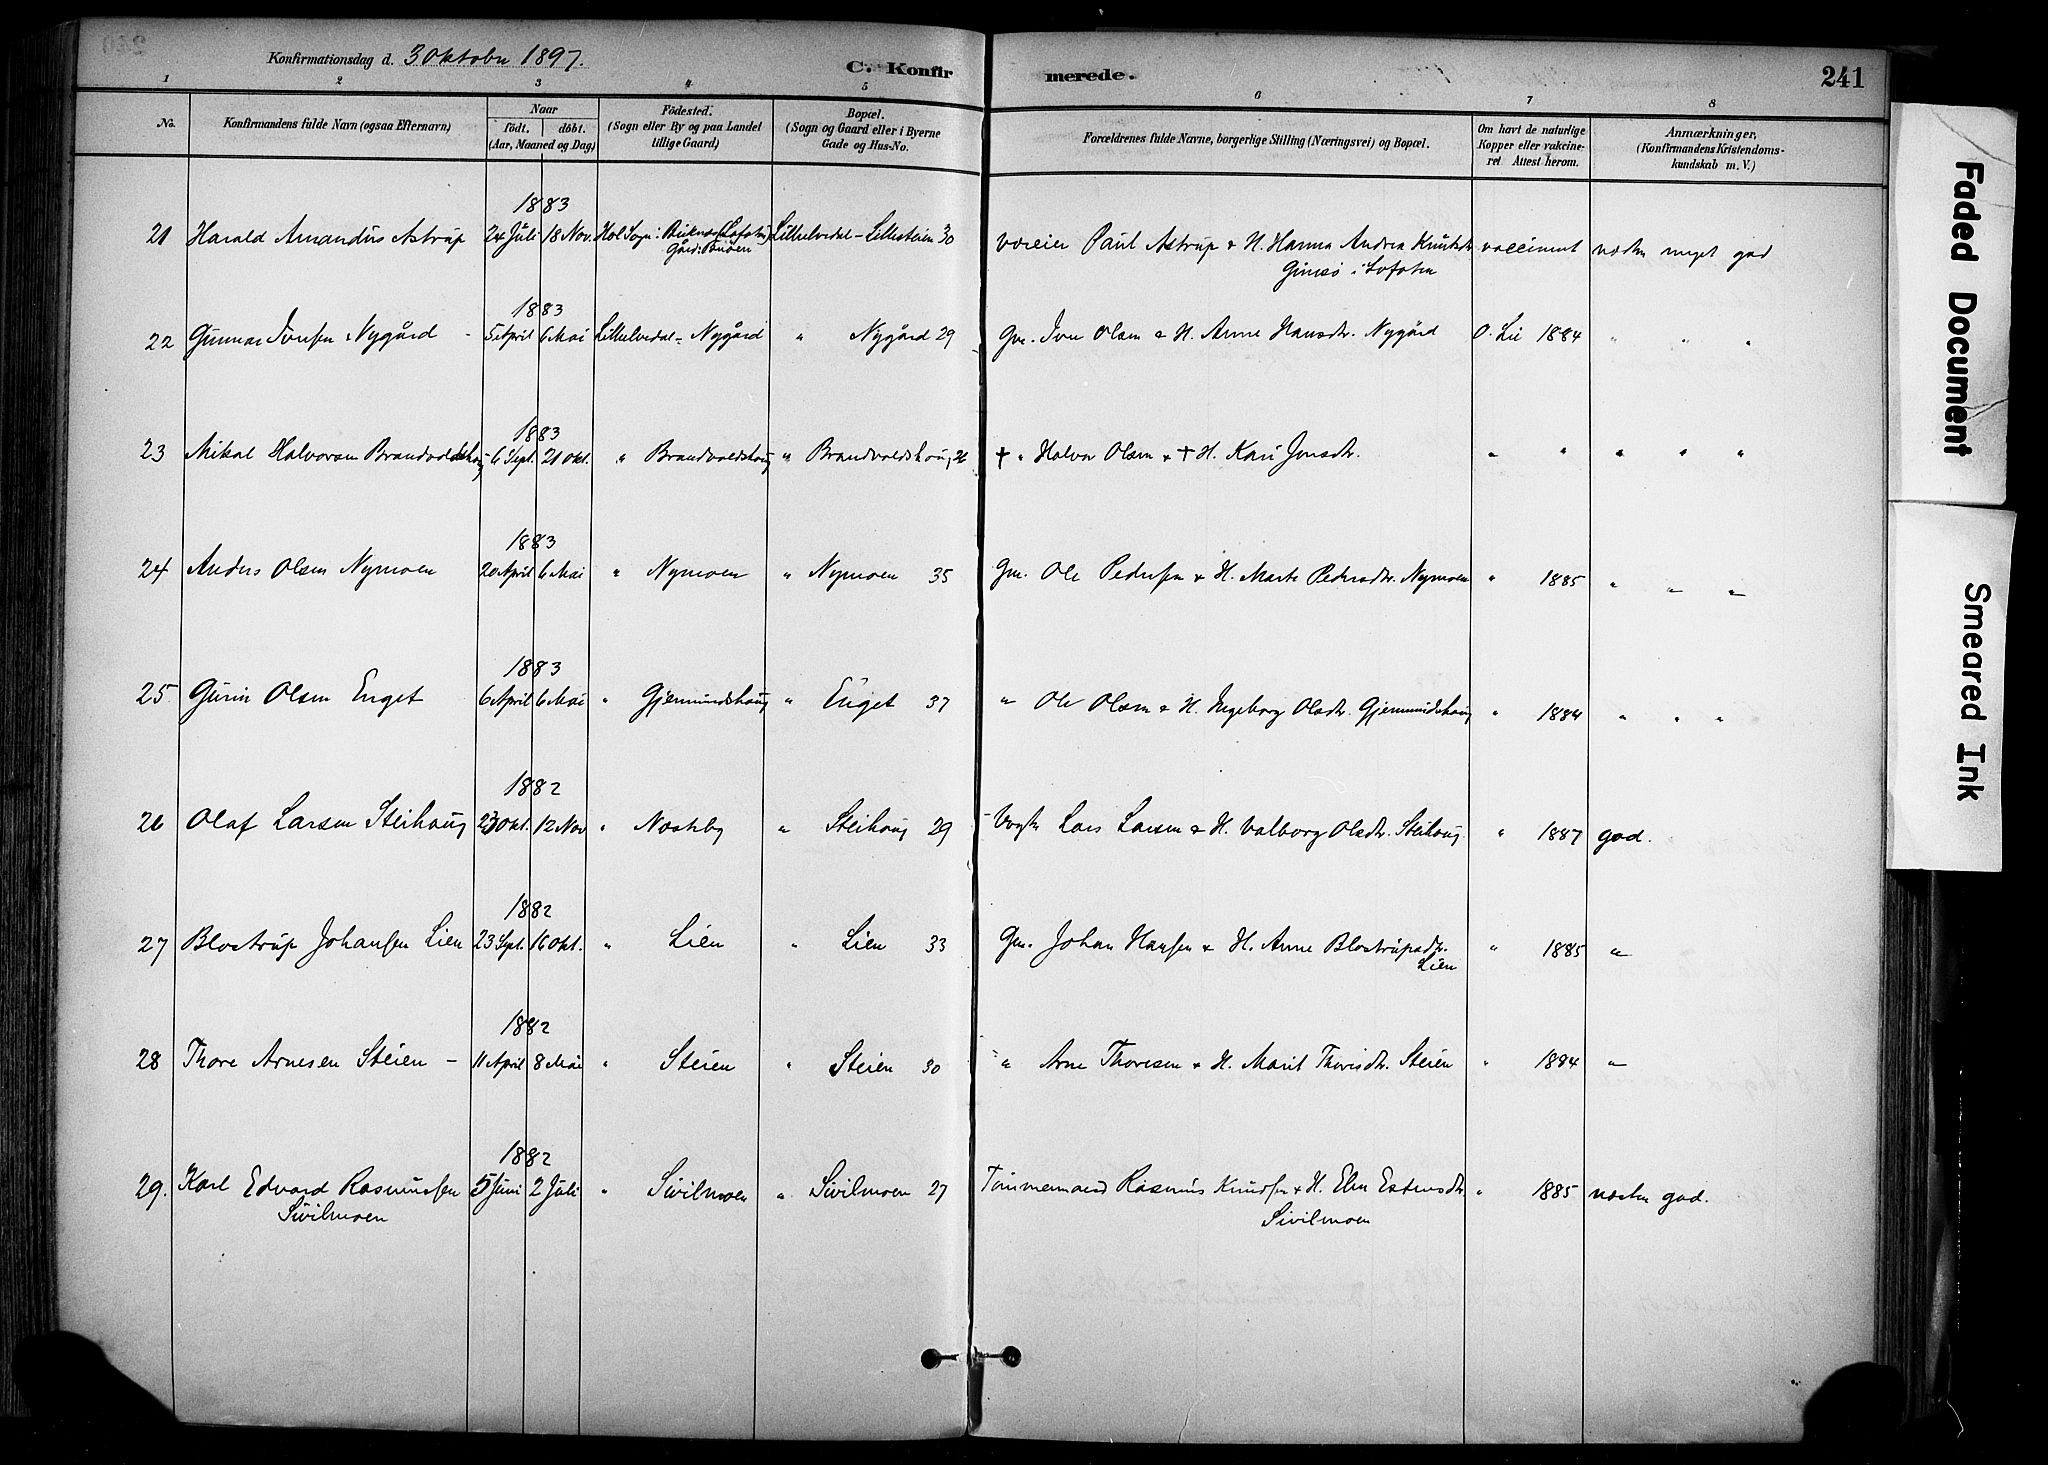 Konfirmationsdag d. 3 Oktober 1897.
C. Konfirmerede.
241
1 2 3 4 5 6 7 8
No.
Konfirmandens fulde Navn (ogsaa Efternavn)
Naar
födt. döbt.
(Aar, Maaned og Dag)
Födested.
(Sogn eller By og paa Landet
tillige Gaard)
Bopæl.
(Sogn og Gaard eller i Byerne
Gade og Hus-No.
Forældrenes fulde Navne, borgerlige Stilling (Næringsvei) og Bopæl.
Om havt de naturlige
Kopper eller vakcine-
ret Attest herom.
Anmærkninger,
(Konfirmandens Kristendoms-
kundskab m. V.)
1883
21 Harald Amandus Astrup 24 Juli 18 Nov. Hol Sogn: Lillelvedal - Lillesteien 30 Paul Astrup & H. Hanna Andrea vaccineret næsten meget god
Gimsö i Lofoten
1883
22 Gunnar Iversen Nygård - 5 April 6 Mai Lillelvedal - Nygård " Nygård 29 Gm. Iver Olsen & H. Anne Hansdtr. Nygård O. Lie 1884 " " "
1883
23 Mikal Halvorsen Brandvoldshaug 6 Sept. 21 Okt. " Brandvoldshaug " Brandvoldshaug 26 † " Halvor Olsen & † H. Kari Jonsdtr. " " " " "
1883
24 Anders Olsen Nymoen 20 April 6 Mai " Nymoen " Nymoen 35 Gm. Ole Pedersen & H. Marte Pedersdtr. Nymoen " 1885 " " "
1883
25 Olsen Enget 6 April 6 Mai " Gjermundshaug " Enget 37 " Ole Olsen & H. Ingeborg Olsdtr. Gjermundshaug " 1884 " " "
1882
26 Olaf Larsen Steihaug 23 Okt. 12 Nov " " Steihaug 29 Lars Larsen & H. Valborg Olsdtr. Steihaug " 1887 god.
1882
27 Blostrup Johansen Lien 23 Sept. 16 Okt. " Lien " Lien 33 Gm. Johan Hansen & H. Anne Blostrupsdtr. " 1885 "
Lien
1882
28 Thore Arnesen Steien - 11 April 8 Mai " Steien " Steien 30 " Arne Thoresen & H. Marit Thoresdtr. Steien " 1884 "
1882
29. Karl Edvard Rasmussen 5 Juni 2 Juli " Sivilmoen " Sivilmoen 27 Tömmermand Rasmus Knudsen & H. Elen Estensdtr. " 1885 næsten god.
Sivilmoen
Sivilmoen
Faded Document
Smeared Ink